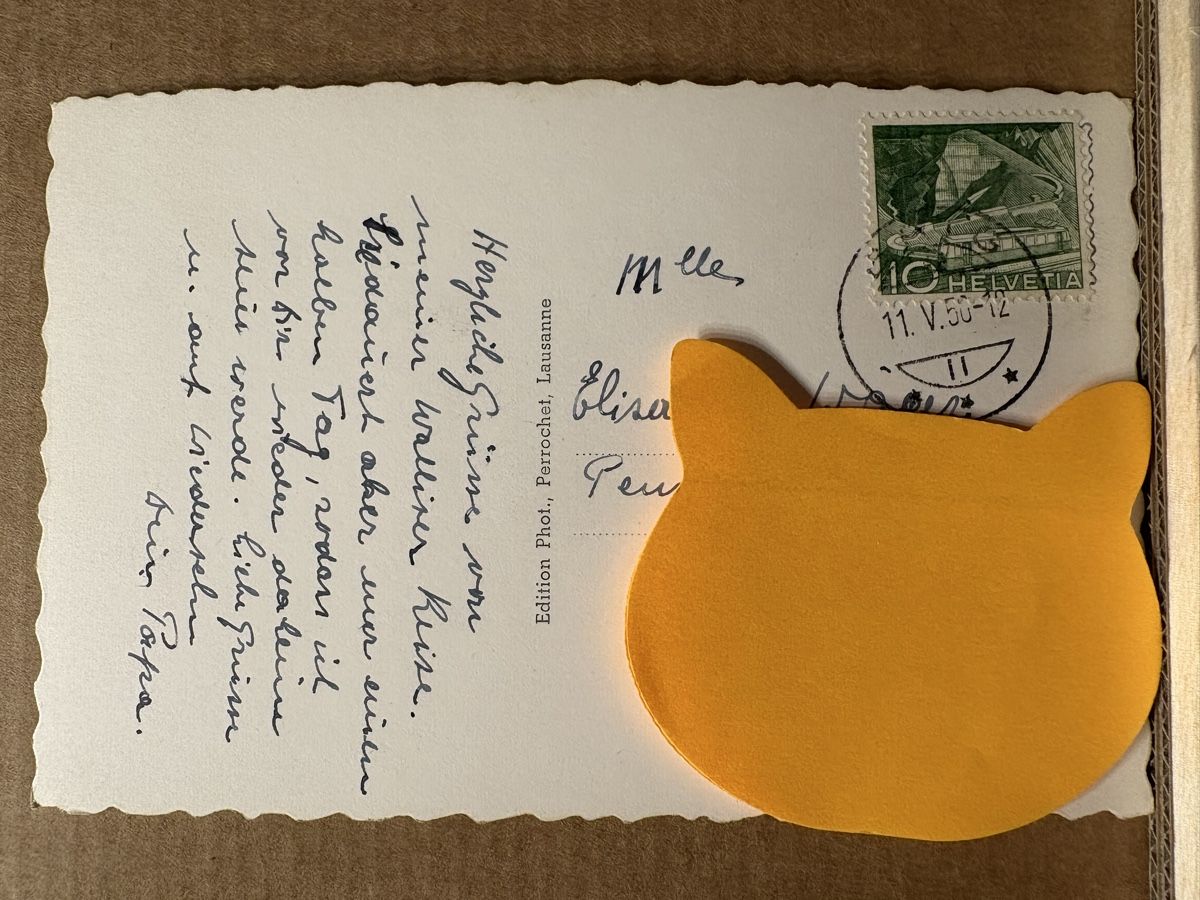 Herzliche Grüsse von
meiner Walliser Reise.
dauert aber nur einen
halben Tag, sodass ich
vor Dir wieder daheim
sein werde. Liebe Grüsse
u. auf Wiedersehn
Dein Papa.
Edition Phot., Perrochet, Lausanne
Mlle
Elisa
Pen
10 HELVETIA
11. V. 50-12